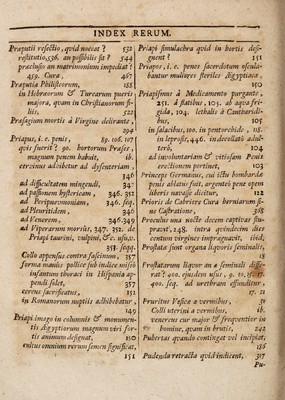 INDEX RERUM.
Præputii resectio, qvid noceat? 532
restitutio, 536. an possibilis sit? 544
præclusio an matrimonium impediat?
459. Cura, 467
Præputia Philisteorum, 188
in Hebræorum & Turcarum pueris
majora, quam in Christianorum fi-
liis, 522
Præsagium mortis à Virgine delirante,
294
Priapus, i. e. penis, 89. 106. 107
qvis fuerit? 90. hortorum Præses,
magnum penem habuit, ib.
cervinus adhibetur ad dysenteriam,
346
ad difficultatem mingendi, 347
ad passionem hystericam, 346. 352
ad Peripnevmoniam, 346. seq.
ad Pleuritidem, 346
ad Venerem, 346. 349
ad Viperarum morsus, 347. 352. de
Priapi taurini, vulpini, &c. usu v.
351. seqq.
Collo appensus contra fascinum, 357
forma manûs pollice sub indice missô
infantum thoraci in Hispania ap-
pendi solet, 357
cereus sacrificatus, 152
in Romanorum nuptiis adhibebatur,
149
Priapi imago in columnis & monumen-
tis Ægyptiorum magnum viri for-
tis animum designat, 150
enitus omnium rerum semen significat,
151
Priapi simulachra qvid in hortis desi-
gnent? 151
Priapos, i. e. penes sacerdotum oscula-
bantur mulieres steriles Ægyptiacæ,
150
Priapismus à Medicamento purgante,
251. à flatibus, 103. ab aqva fri-
gida, 104. lethalis à Cantharidi-
bus, 105
in salacibus, 100. in pentorchide, 118.
in leprosis, 446. in devorllato adul-
tero, 104
ad involuntariam & vitiosam Penis
erectionem pertinet, 103
Princeps Germanus, cui ictu bombardæ
penis ablatus fuit, argenteô pene opem
liberis navasse dicitur, 112
Prioris de Cabriere Cura herniarum si-
ne Castratione, 318
Proculus una nocte decem captivas stu-
pravit, 248. intra qvindecim dies
centum virgines imprægnavit, ibid.
Prostatæ sunt organa liqvoris seminalis,
18
Prostatarum liqvor an à seminali diffe-
rat? 400. ejusdem usus, 9. 10. 15. 17.
400. seq. ad urethram effunditur,
17. 21
Pruritus Vesicæ à vermibus, 30
Colli uterini à vermibus, ib.
venereus cur major & freqventior in
homine, qvam in brutis, 242
Pubertas qvando contingat vel incipiat,
186
Pudenda retracta qvid indicent, 317
Pu-